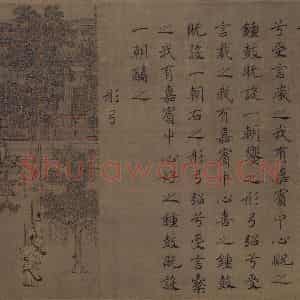 兮受言藏之我有嘉賓中心貺之
鍾鼓既設一朝饗之彤弓弨兮受
言載之我有嘉賓中心喜之鍾鼓
既設一朝右之彤弓弨兮受言櫜
之我有嘉賓中心好之鍾鼓既設
一朝醻之
彤弓
Shufawang.CN